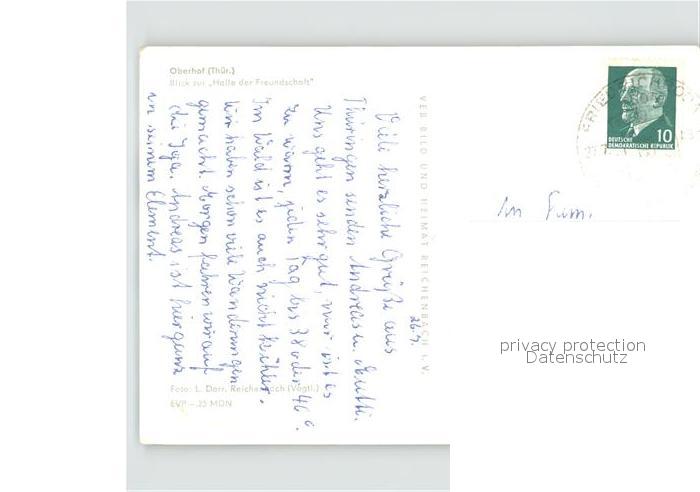 Oberhof (Thür.)
Blick zur „Halle der Freundschaft"
VEB BILD UND HEIMAT REICHENBACH i. V.
26.7.
Viele herzliche Grüße aus
Thüringen senden Andreas u. Mutti.
Uns geht es sehr gut, nur ist es
zu warm, jeden Tag bis 38 oder 40°.
Im Wald ist es auch nicht kühler.
Wir haben schon viele Wanderungen
gemacht. Morgen fahren wir auf
die Andreas ist hier ganz
in seinem Element.
Foto: L. Dorr, Reichenbach (Vogtl.)
EVP –.25 MDN
DEUTSCHE
DEMOKRATISCHE REPUBLIK
10
An Fam.
privacy protection
Datenschutz